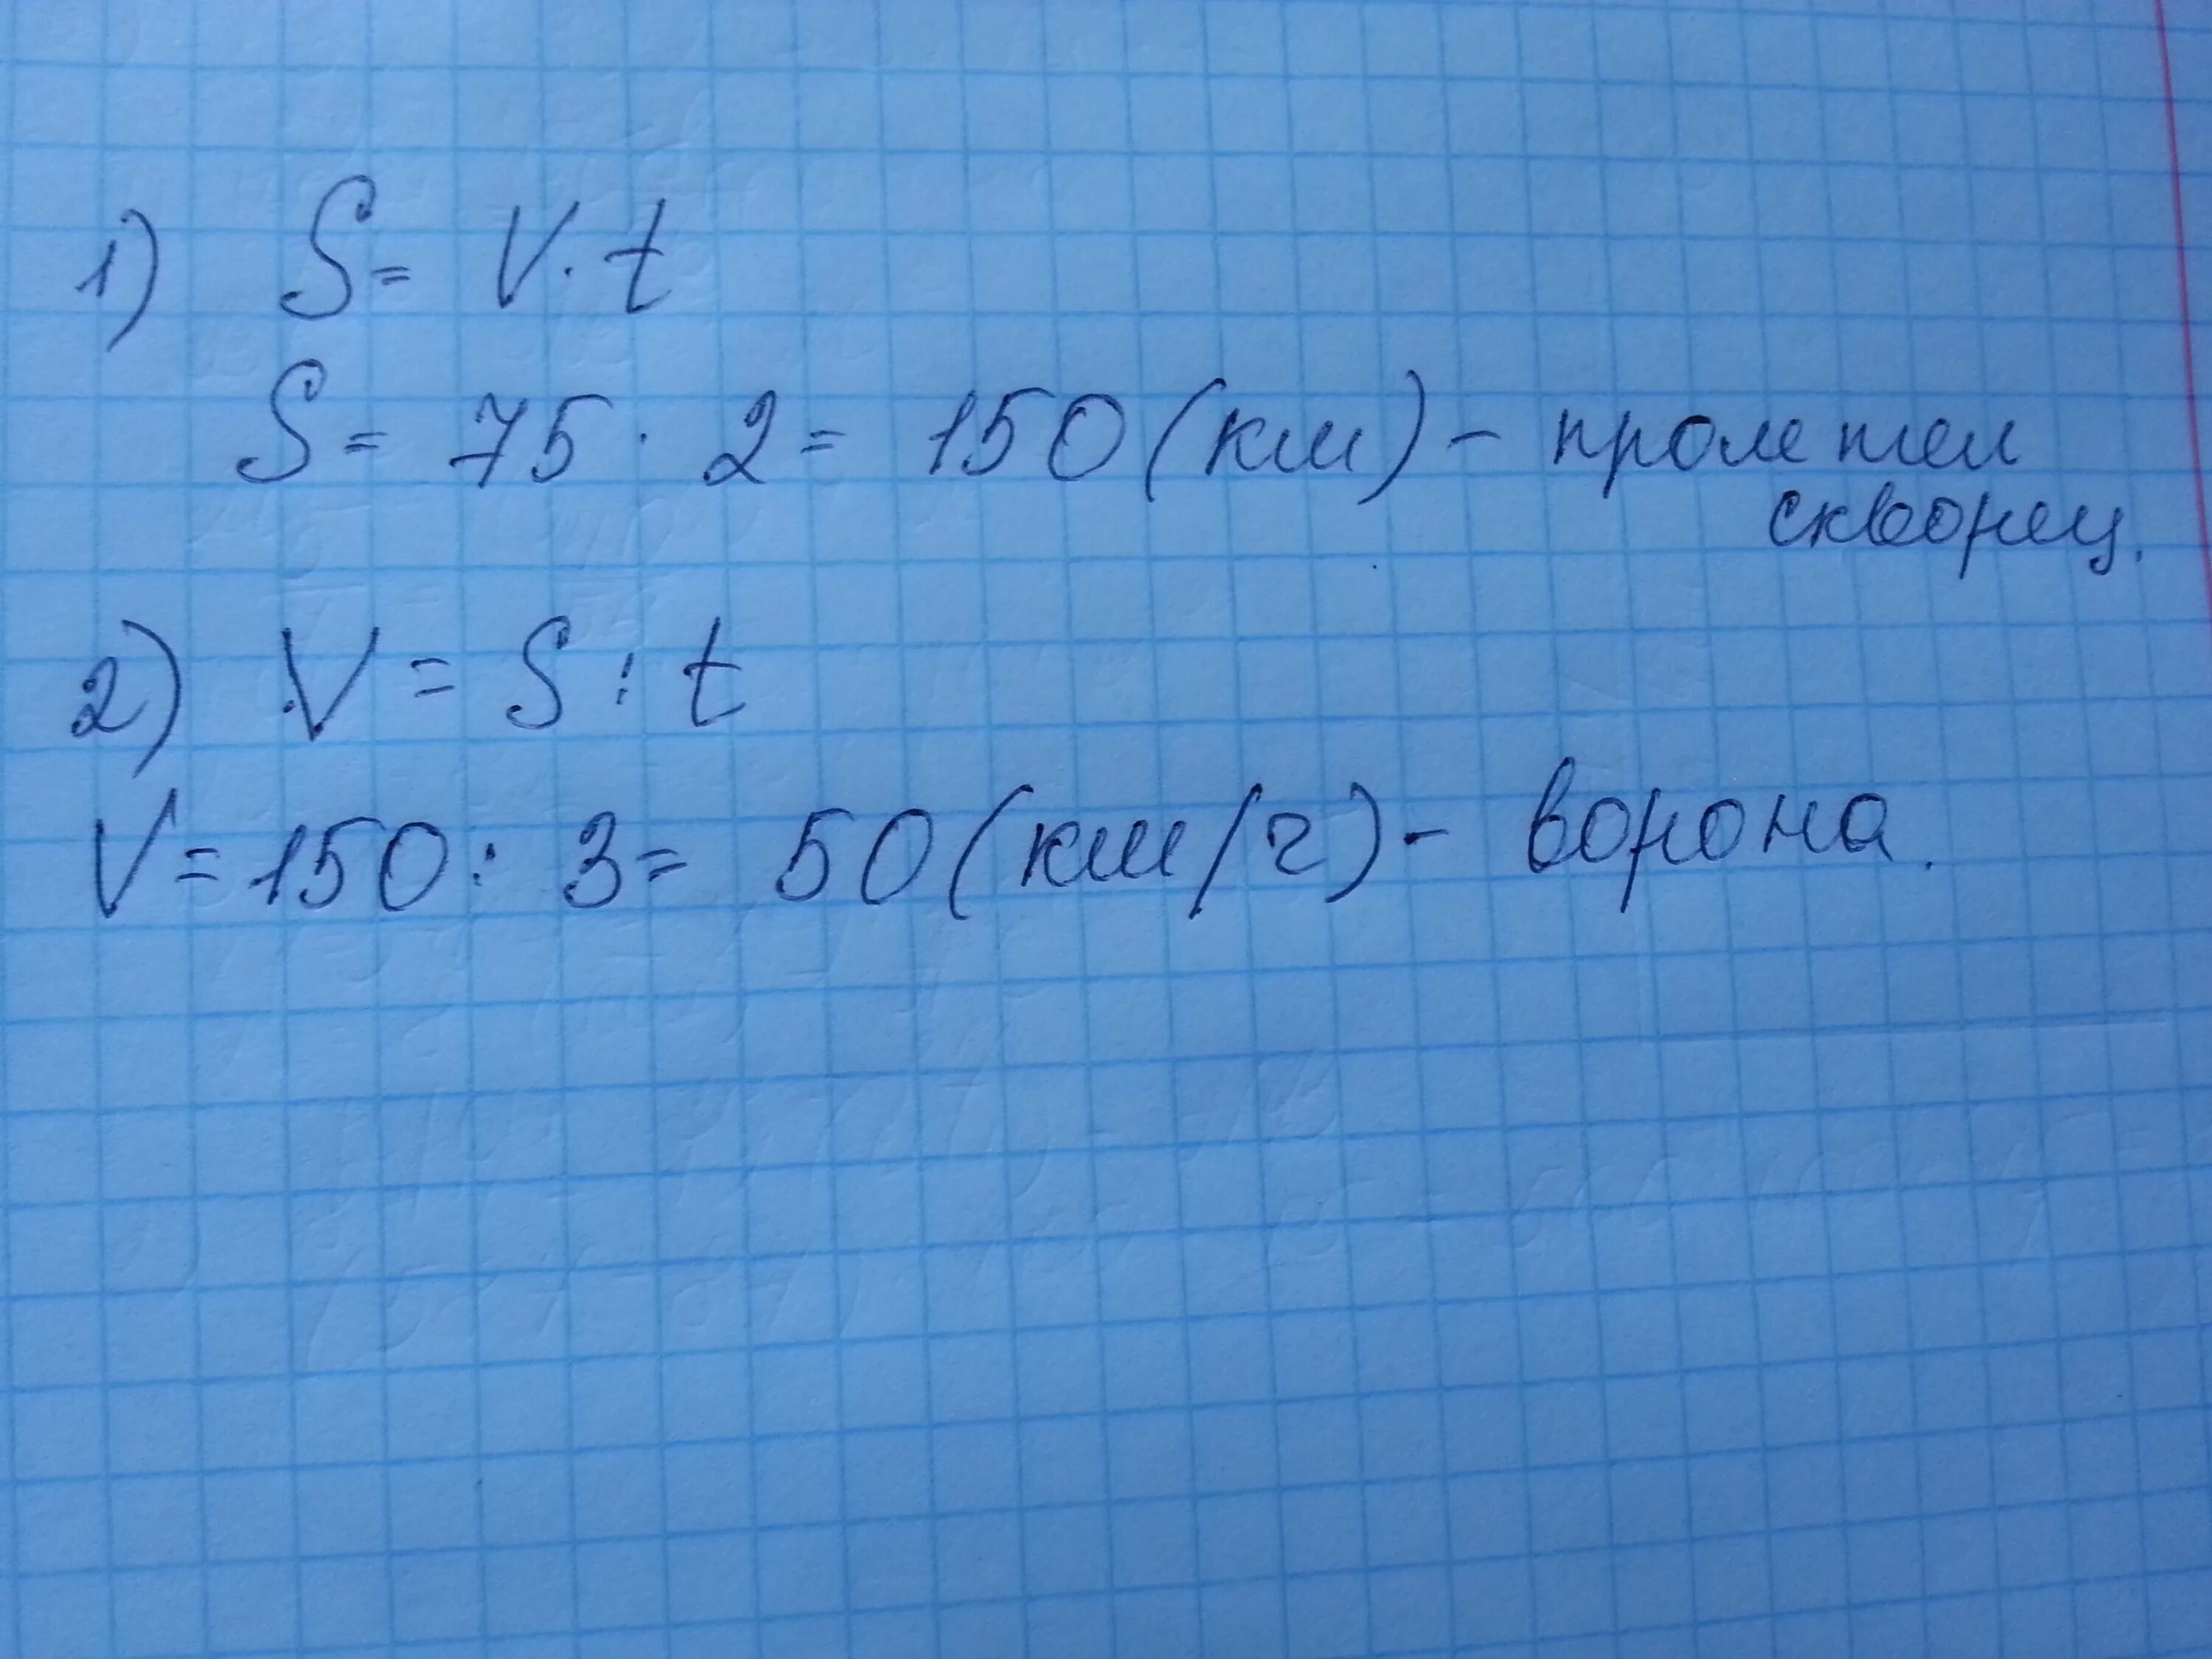 1) S = V · t
S = 75 · 2 = 150 (км) - пролетел
скворец.
2) V = S : t
V = 150 : 3 = 50 (км/г) - ворона.